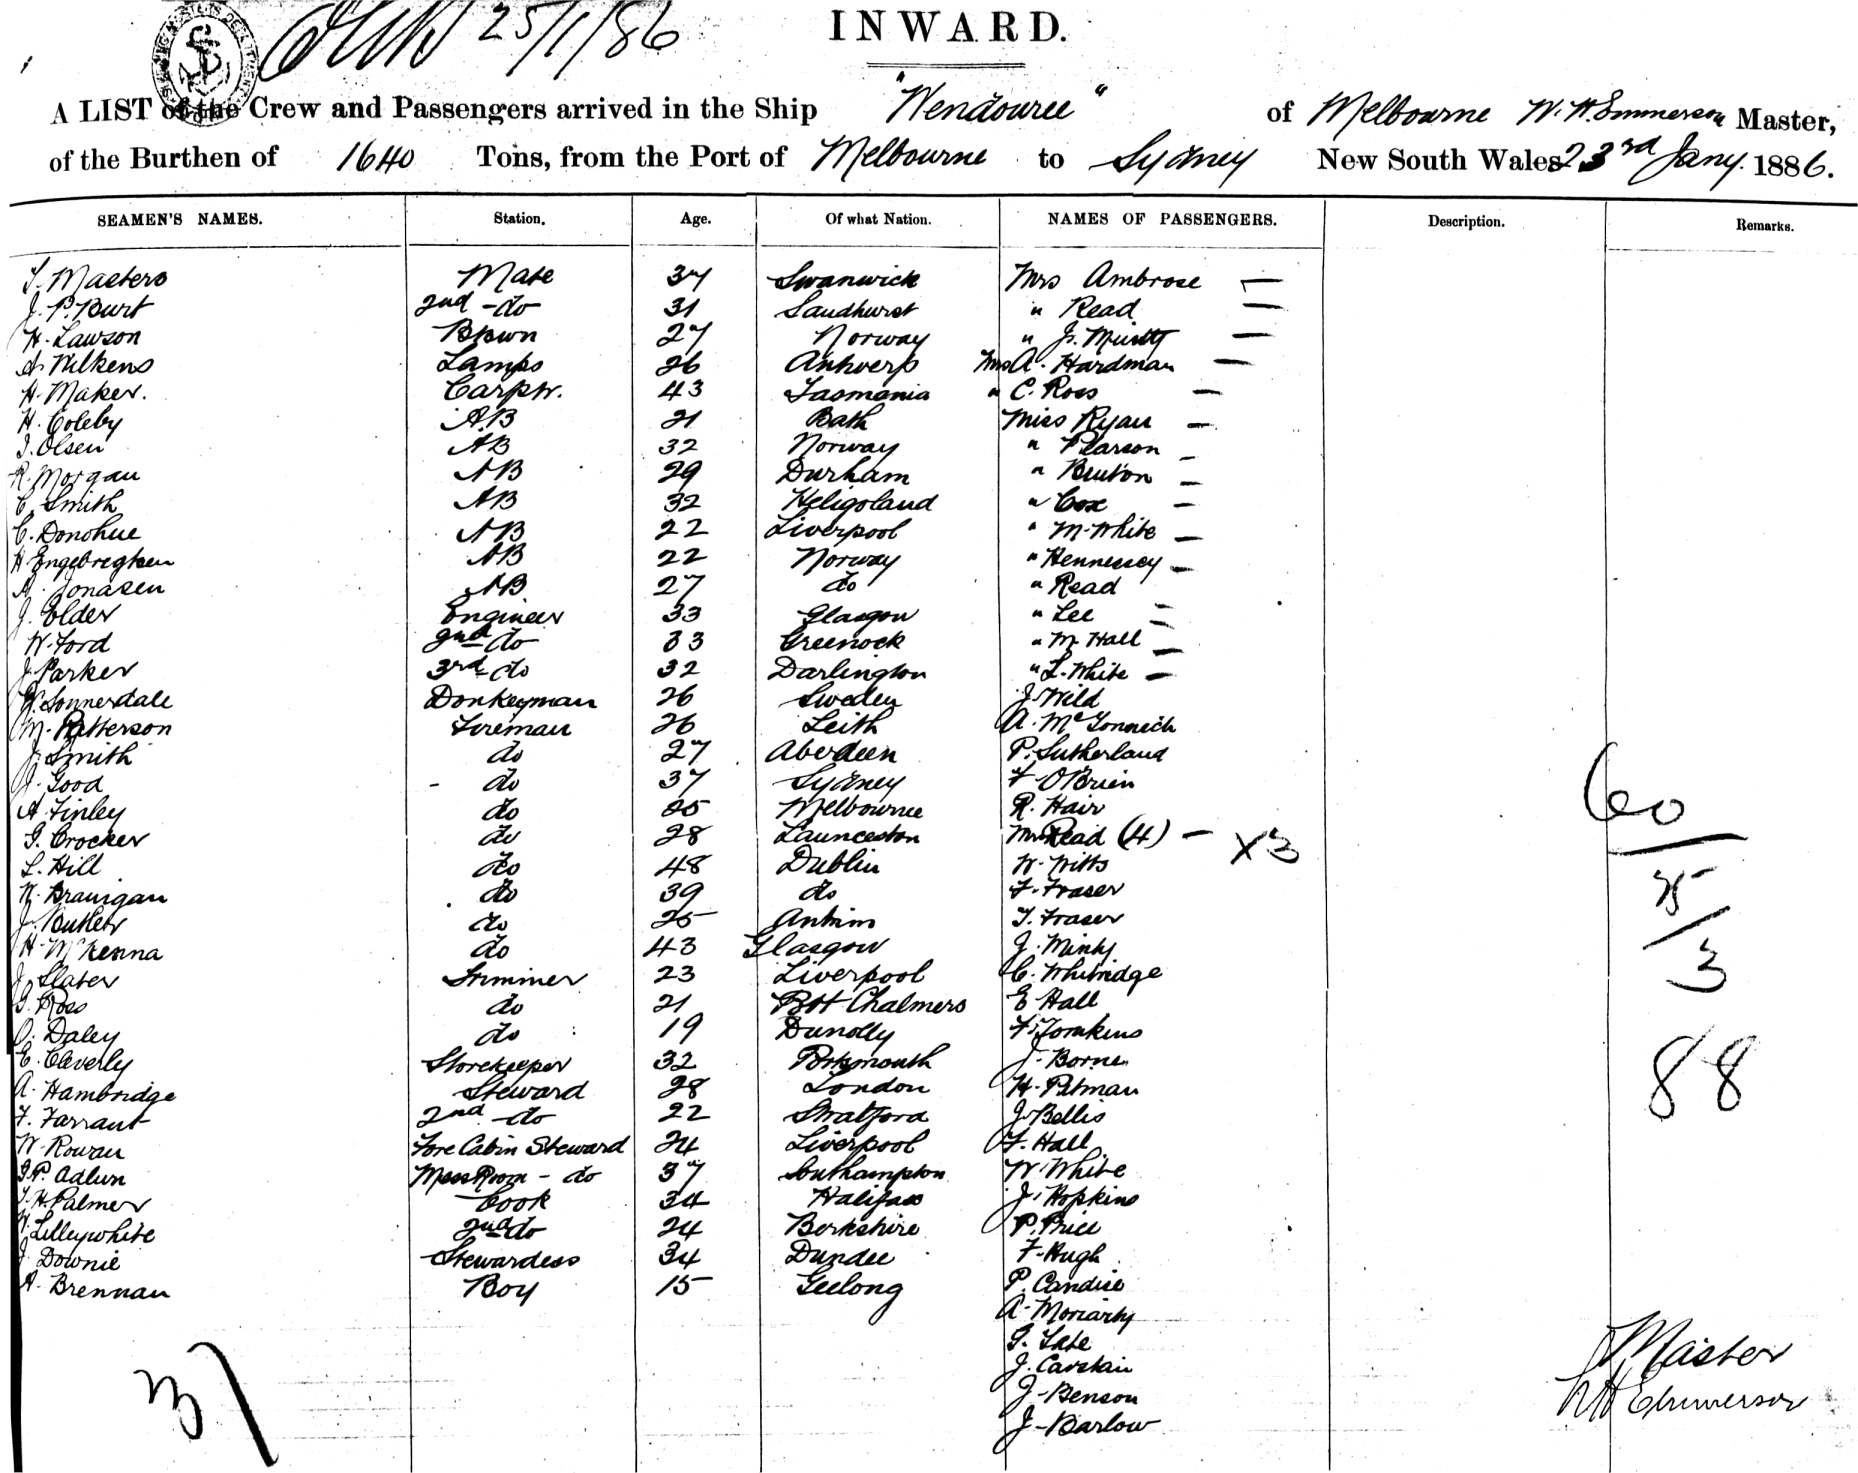 25/1/86
INWARD.
A LIST of the Crew and Passengers arrived in the Ship "Wendouree" of Melbourne W. H. Emmerson Master,
of the Burthen of 1640 Tons, from the Port of Melbourne to Sydney New South Wales 23rd Jany. 1886.
SEAMEN'S NAMES. Station. Age. Of what Nation. NAMES OF PASSENGERS. Description. Remarks.
T. Masters Mate 37 Swanwick Mrs Ambrose —
J. P. Burt 2nd - do 31 Sandhurst " Read —
H. Lawson Bswn 27 Norway " J. —
A. Wilkens Lamps 26 Antwerp Mrs A. Hardman —
H. Maker. Carptr. 43 Tasmania " C. Ross —
H. Coleby AB 21 Bath Miss Ryan —
I. Olsen AB 32 Norway " Pearson —
R. Morgan AB 29 Durham " Bruton —
C. Smith AB 32 Heligoland " Cox —
C. Donohue AB 22 Liverpool " M. White —
H Engebregtsen AB 22 Norway " Hennessey —
A. Jonasen AB 27 do " Read
J. Elder Engineer 33 Glasgow " Lee —
W. Ford 2nd do 33 Greenock " M Hall —
J. Parker 3rd do 32 Darlington " L. White —
Sonnerdale Donkeyman 26 Sweden J. Wild
M. Patterson Fireman 26 Leith A. McGonnich
J. Smith do 27 Aberdeen P. Sutherland
J. Good - do 37 Sydney F. O'Brien
A. Finley do 25 Melbourne R. Hair
G. Crocker do 28 Launceston Mr Read (4) — x3
L. Hill do 48 Dublin W. Witts
N. Branigan do 39 do F. Fraser
J. Butler do 25 Antrim T. Fraser
H. McKenna do 43 Glasgow J. Minty
J. Slater Trimmer 23 Liverpool C. Whitridge
G. Ross do 21 Port Chalmers E Hall
O. Daley do 19 Dunolly F. Tomkins
E. Cleverly Storekeeper 32 Portsmouth J. Borne
A. Hambridge Steward 28 London H. Pitman
F. Farrant 2nd do 22 Stratford J. Bellis
W. Rowan Fore Cabin Steward 24 Liverpool F. Hall
G. P. Adlum Mess Room - do 37 Southampton W. White
T. H. Palmer Cook 34 Halifax J. Hopkins
Lilleywhite 2nd do 24 Berkshire P. Price
J. Downie Stewardess 34 Dundee F. Hugh
A. Brennan Boy 15 Geelong P. Candise
A. Moriarty
G. Tate
J. Carstair
J. Benson
J. Barlow
37
60/
25/
3
88
Master
W H Emmerson